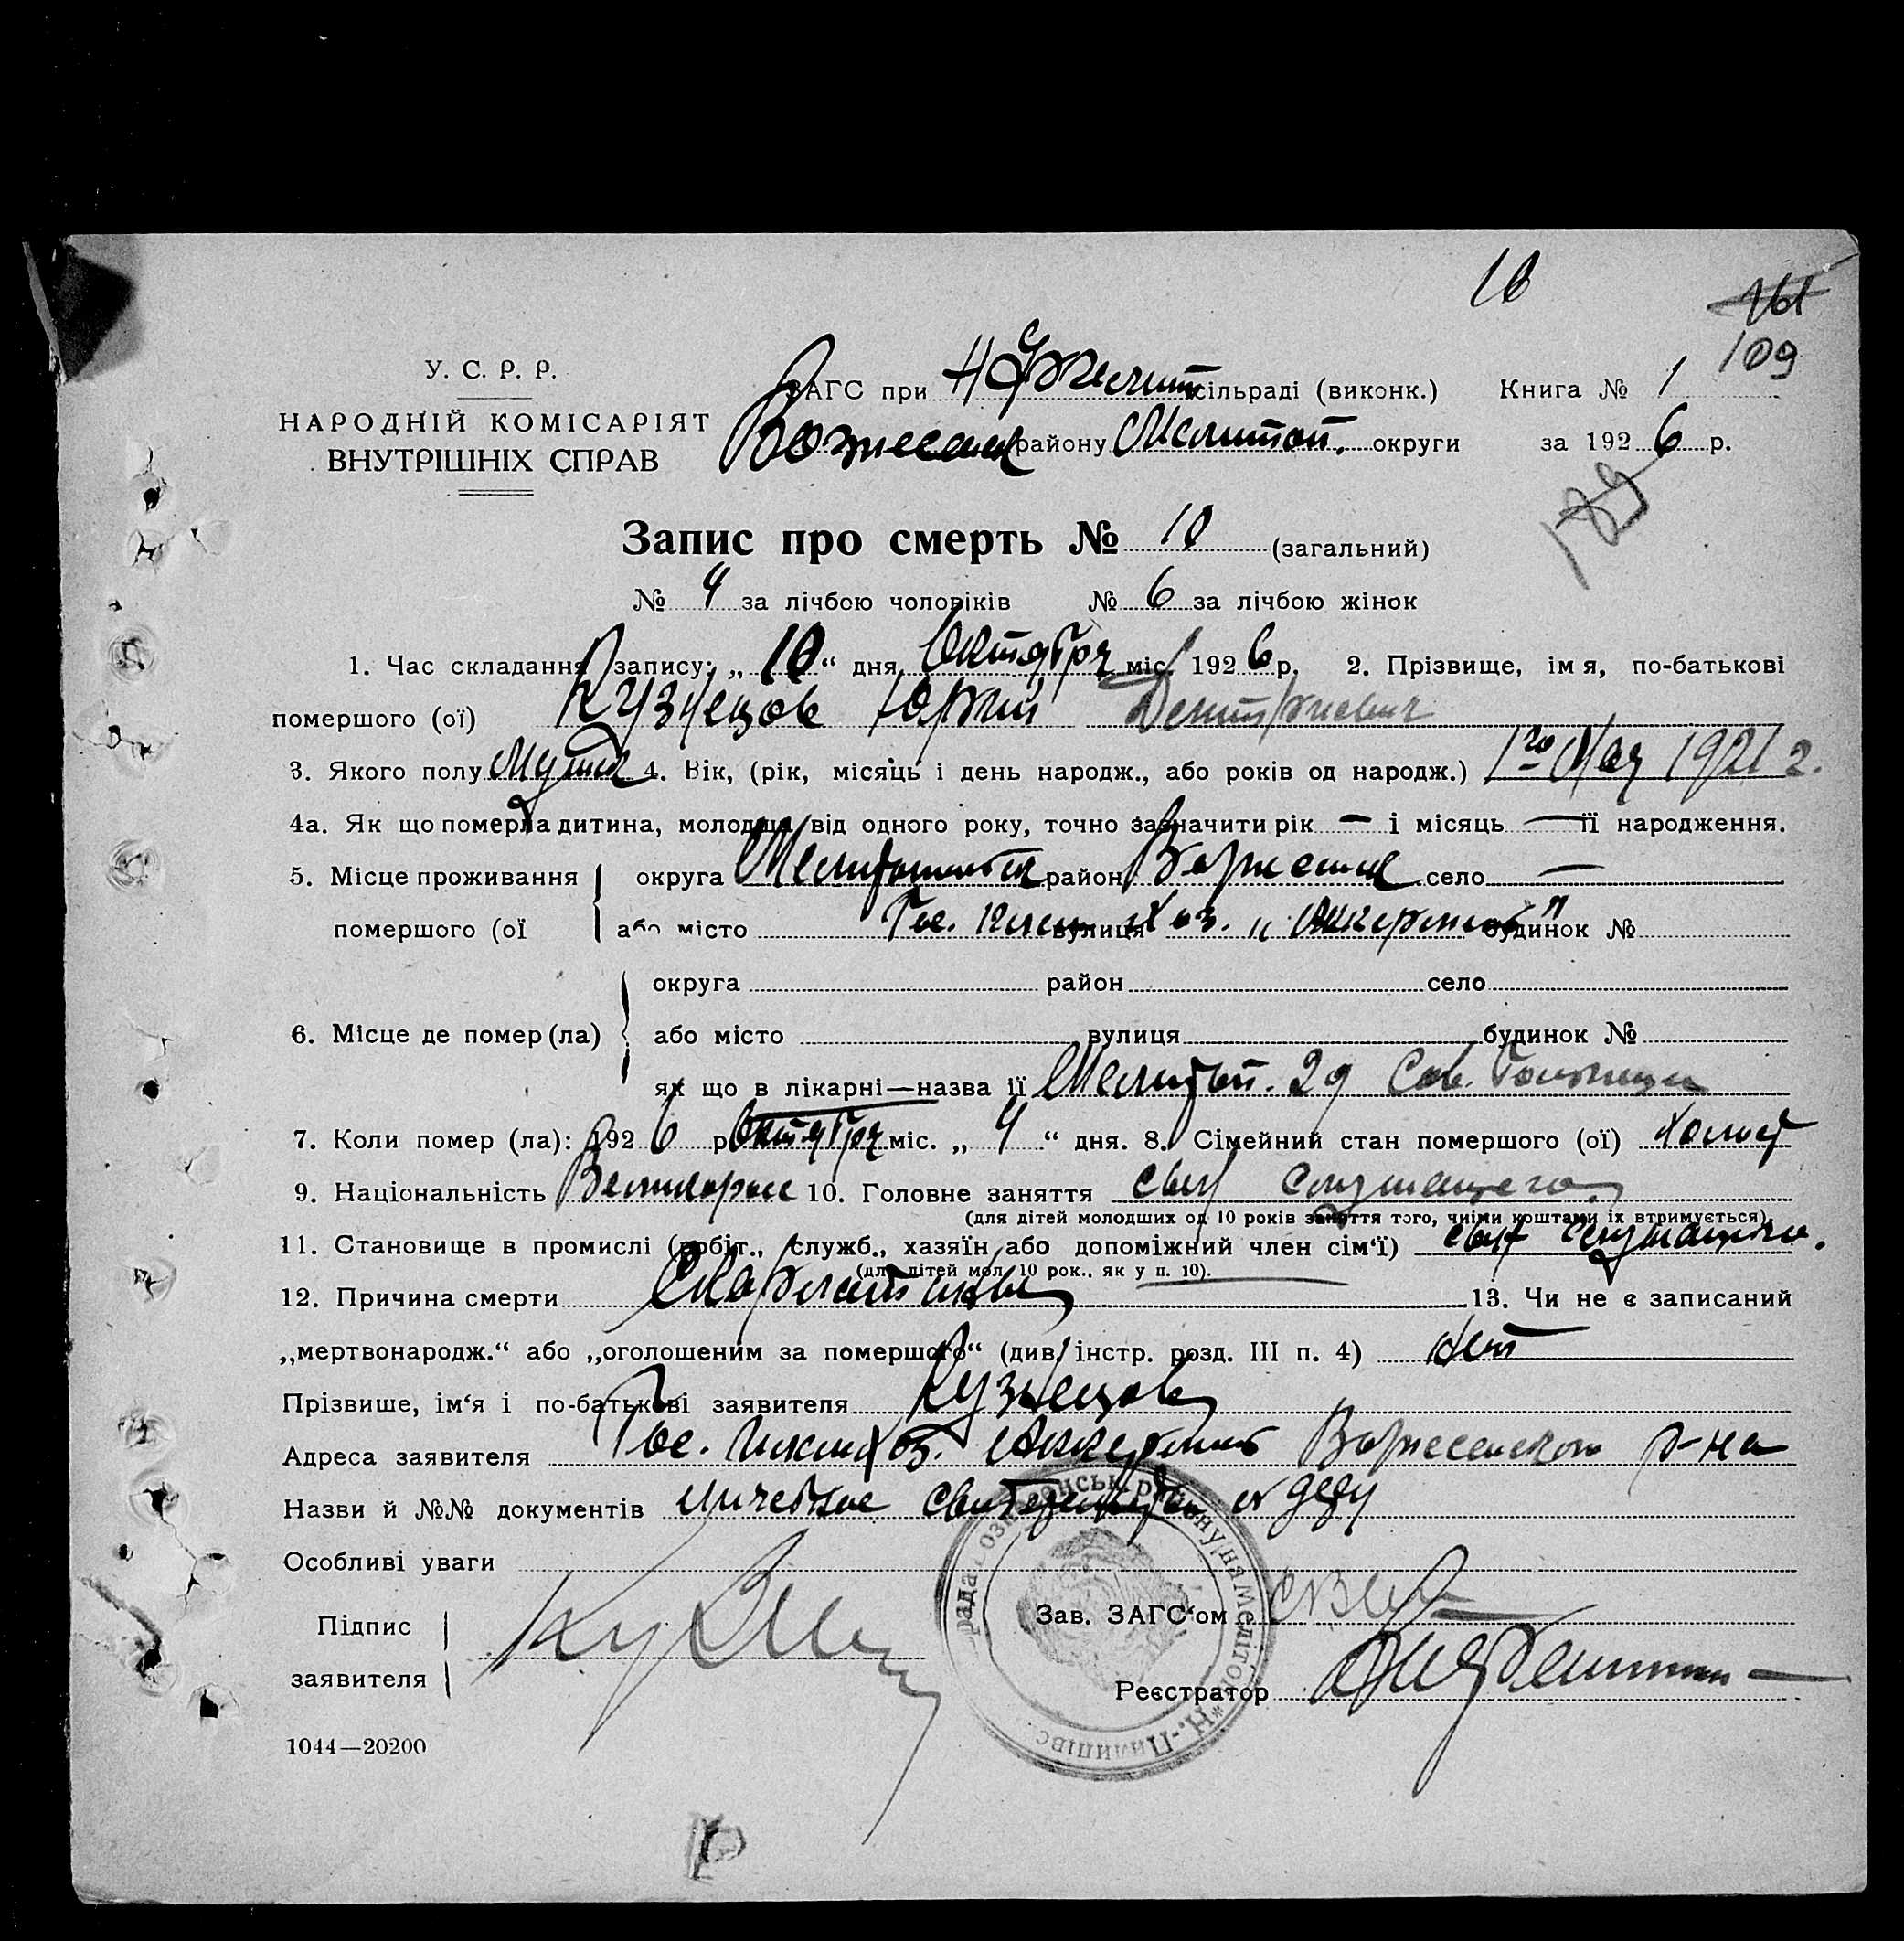 10
161
109
У. С. Р. Р.
НАРОДНІЙ КОМІСАРІЯТ
ВНУТРІШНІХ СПРАВ
ЗАГС при сільраді (виконк.) Книга № 1
Вознесенск району Мелитоп. округи за 1926 р.
129
Запис про смерть № 10 (загальний)
№ 4 за лічбою чоловіків № 6 за лічбою жінок
1. Час складання запису: „ 10 “ дня Октября міс. 1926 р. 2. Прізвище, ім я, по-батькові
помершого (ої) Кузнецов Юрий Дмитриевич
3. Якого полу Мужск 4. Вік, (рік, місяць і день народж., або років од народж.) 1го Мая 1921 г.
4а. Як що померла дитина, молодша від одного року, точно зазначити рік — і місяць — її народження.
5. Місце проживання округа район село —
помершого (ої або місто Гос. вулиця хоз. „ Аккермень “ будинок №
округа район село
6. Місце де помер (ла) або місто вулиця будинок №
як що в лікарні—назва її Мелитоп. 2я Сов. Больница
7. Коли помер (ла): 1926 р Октября міс. „ 4 “ дня. 8. Сімейний стан помершого (ої) холост
9. Національність Великоросс 10. Головне заняття сын служащего
(для дітей молодших од 10 років заняття того, чиїми коштами їх втримується)
11. Становище в промислі (робіт., служб., хазяїн або допоміжний член сім‘ї) сын служащего.
(для дітей мол. 10 рок., як у п. 10).
12. Причина смерти Скарлатина 13. Чи не є записаний
„мертвонародж.“ або „оголошеним за помершого“ (див. інстр. розд. III п. 4) Нет
Прізвише, ім‘я і по-батькові заявителя Кузнецов
Адреса заявителя Гос. хоз. Аккермень Вознесенского р-на
Назви й №№ документів к делу
Особливі уваги
Підпис
заявителя
Зав. ЗАГС‘ом
Реєстратор
1044—20200